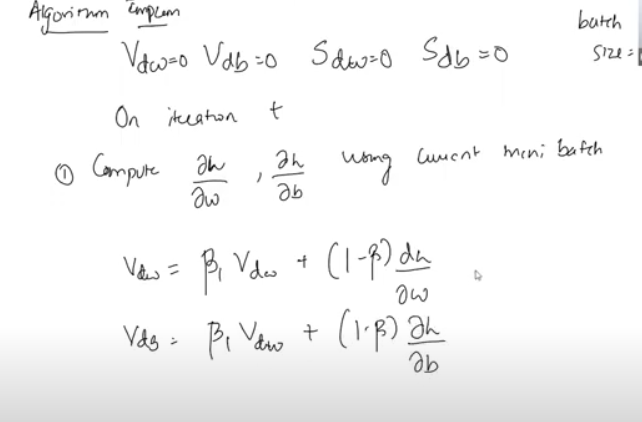 Algorithm Implem
batch
size =
Vdw=0 Vdb=0 Sdw=0 Sdb=0
On iteration t
① Compute ∂h/∂w , ∂h/∂b using current mini batch
Vdw = β₁ Vdw + (1-β) dh/∂w
Vdb = β₁ Vdw + (1-β) ∂h/∂b